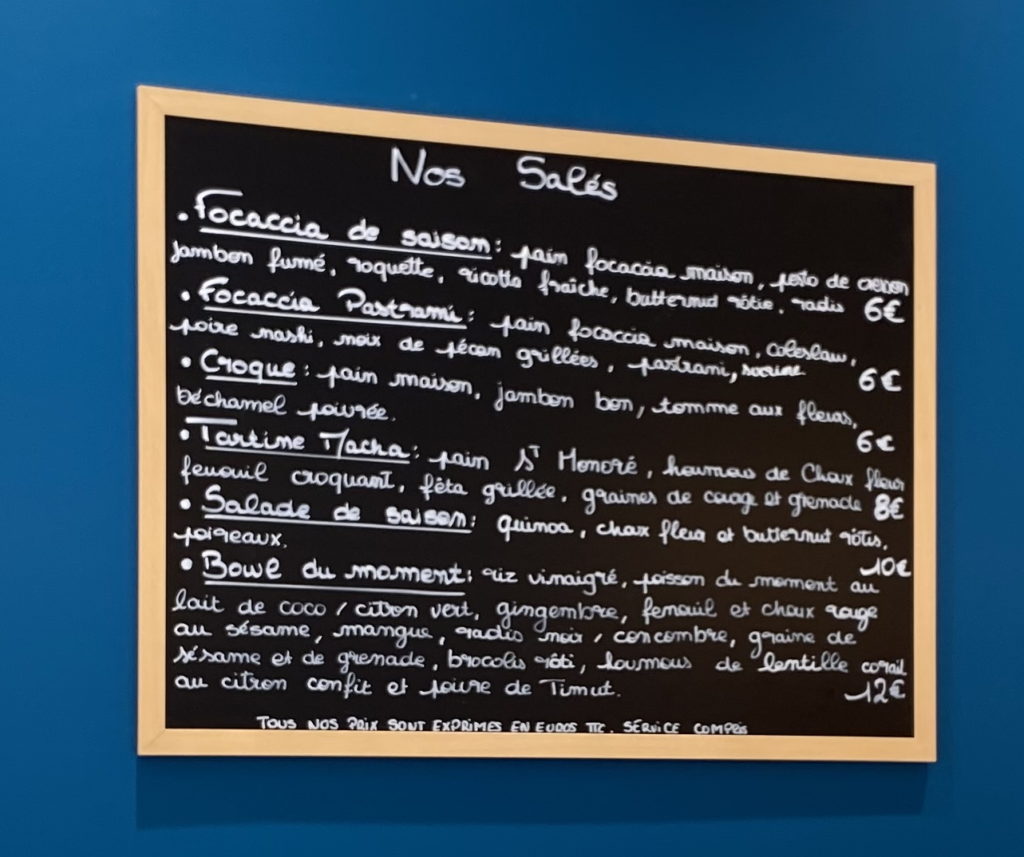 Nos Salés
• Focaccia de saison : pain focaccia maison, pesto de
jambon fumé, roquette, ricotta fraîche, butternut rôtie, radis 6€
• Focaccia Pastrami : pain focaccia maison, coleslaw,
poire nashi, noix de pécan grillées, pastrami, sucrine 6€
• Croque : pain maison, jambon bon, tomme aux fleurs,
béchamel poivrée. 6€
• Tartine Macha : pain St Honoré, houmous de Choux fleur
fenouil croquant, fêta grillée, graines de courge et grenade 8€
• Salade de saison : quinoa, choux fleur et butternut rôtis,
poireaux. 10€
• Bowl du moment : riz vinaigré, poisson du moment au
lait de coco / citron vert, gingembre, fenouil et choux rouge
au sésame, mangue, radis noir / concombre, graine de
sésame et de grenade, brocolis rôti, houmous de lentille corail
au citron confit et poivre de Timut. 12€
TOUS NOS PRIX SONT EXPRIMES EN EUROS TTC. SERVICE COMPRIS